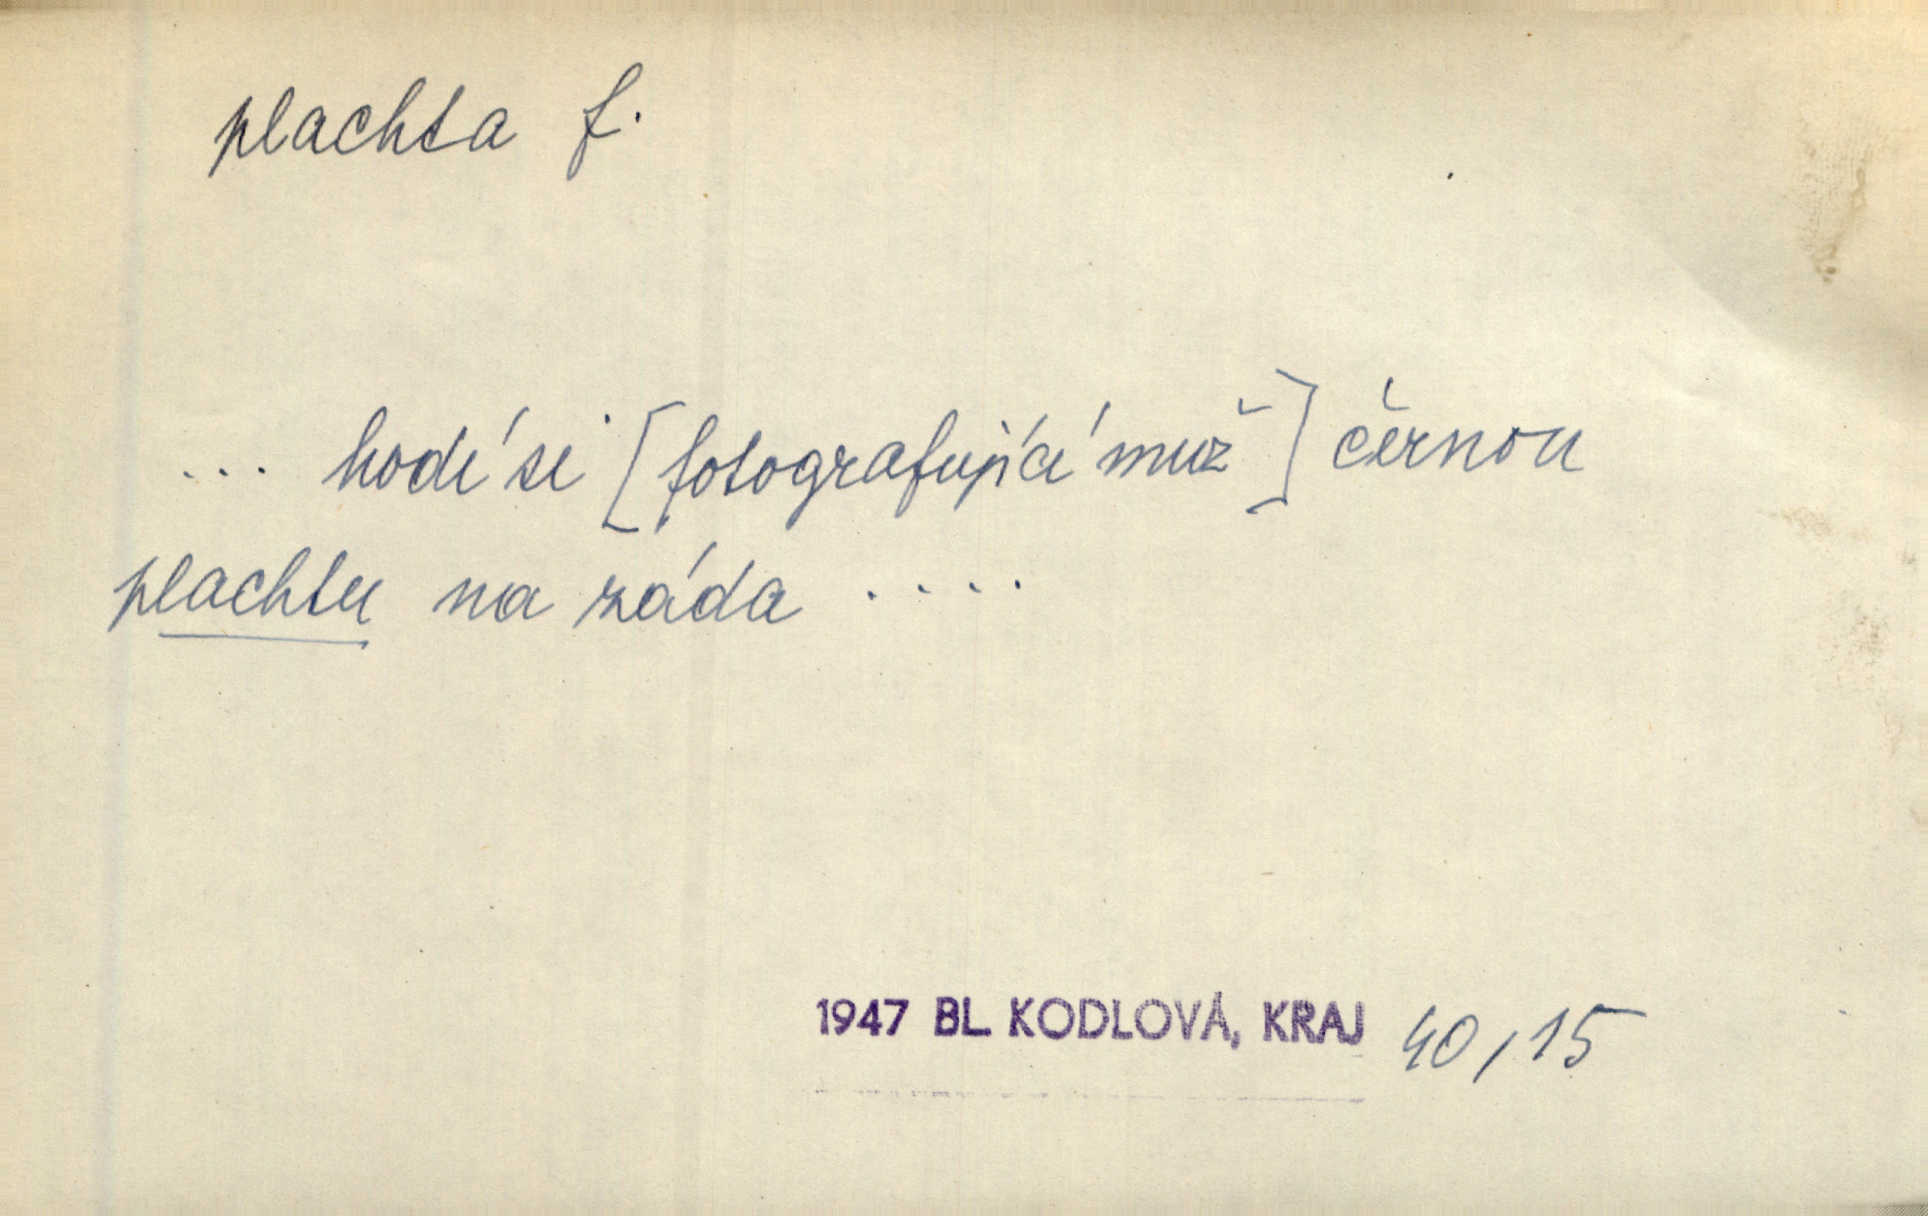 plachta f.
... hodí si [fotografující muž] černou
plachtu na záda ....
1947 BL. KODLOVÁ, KRAJ 40,15